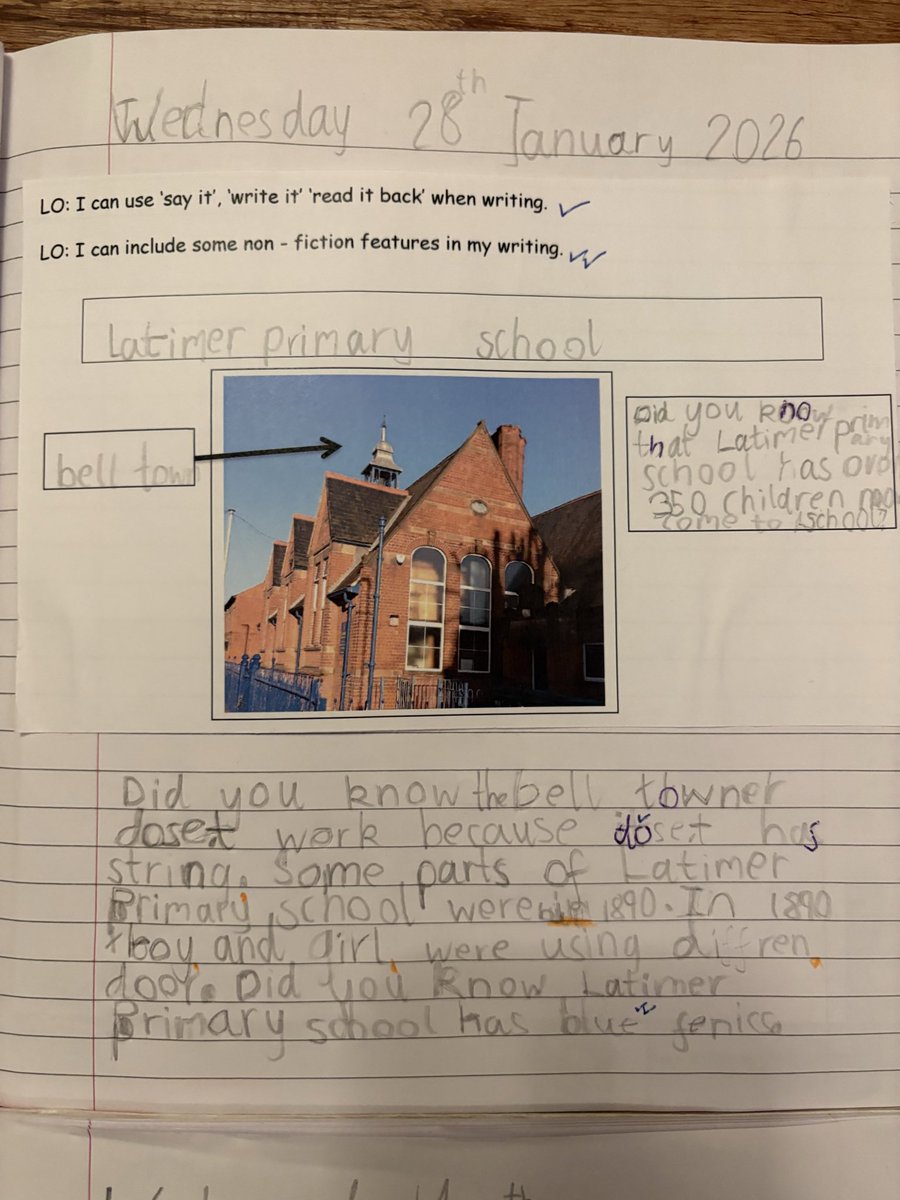 Wednesday 28th January 2026
LO: I can use 'say it', 'write it' 'read it back' when writing.
LO: I can include some non - fiction features in my writing.
Latimer primary school
bell town
Did you know
that Latimer primary
school has
350 children
come to school?
Did you know the bell towner
doset work because doset has
string. Some parts of Latimer
Primary school were 1890. In 1890
boy and girl were using diffren
door. Did you know Latimer
primary school has blue fenics